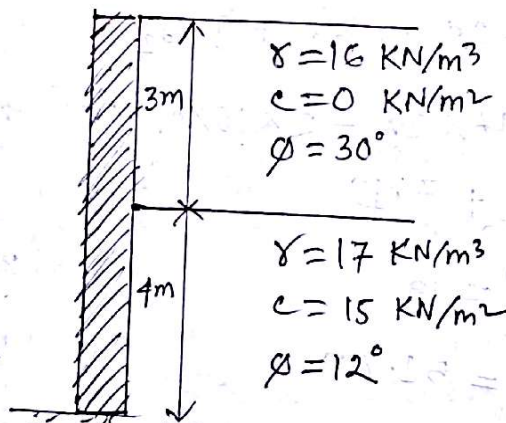 γ = 16 KN/m³
c = 0 KN/m²
φ = 30°
3m
γ = 17 KN/m³
c = 15 KN/m²
φ = 12°
4m